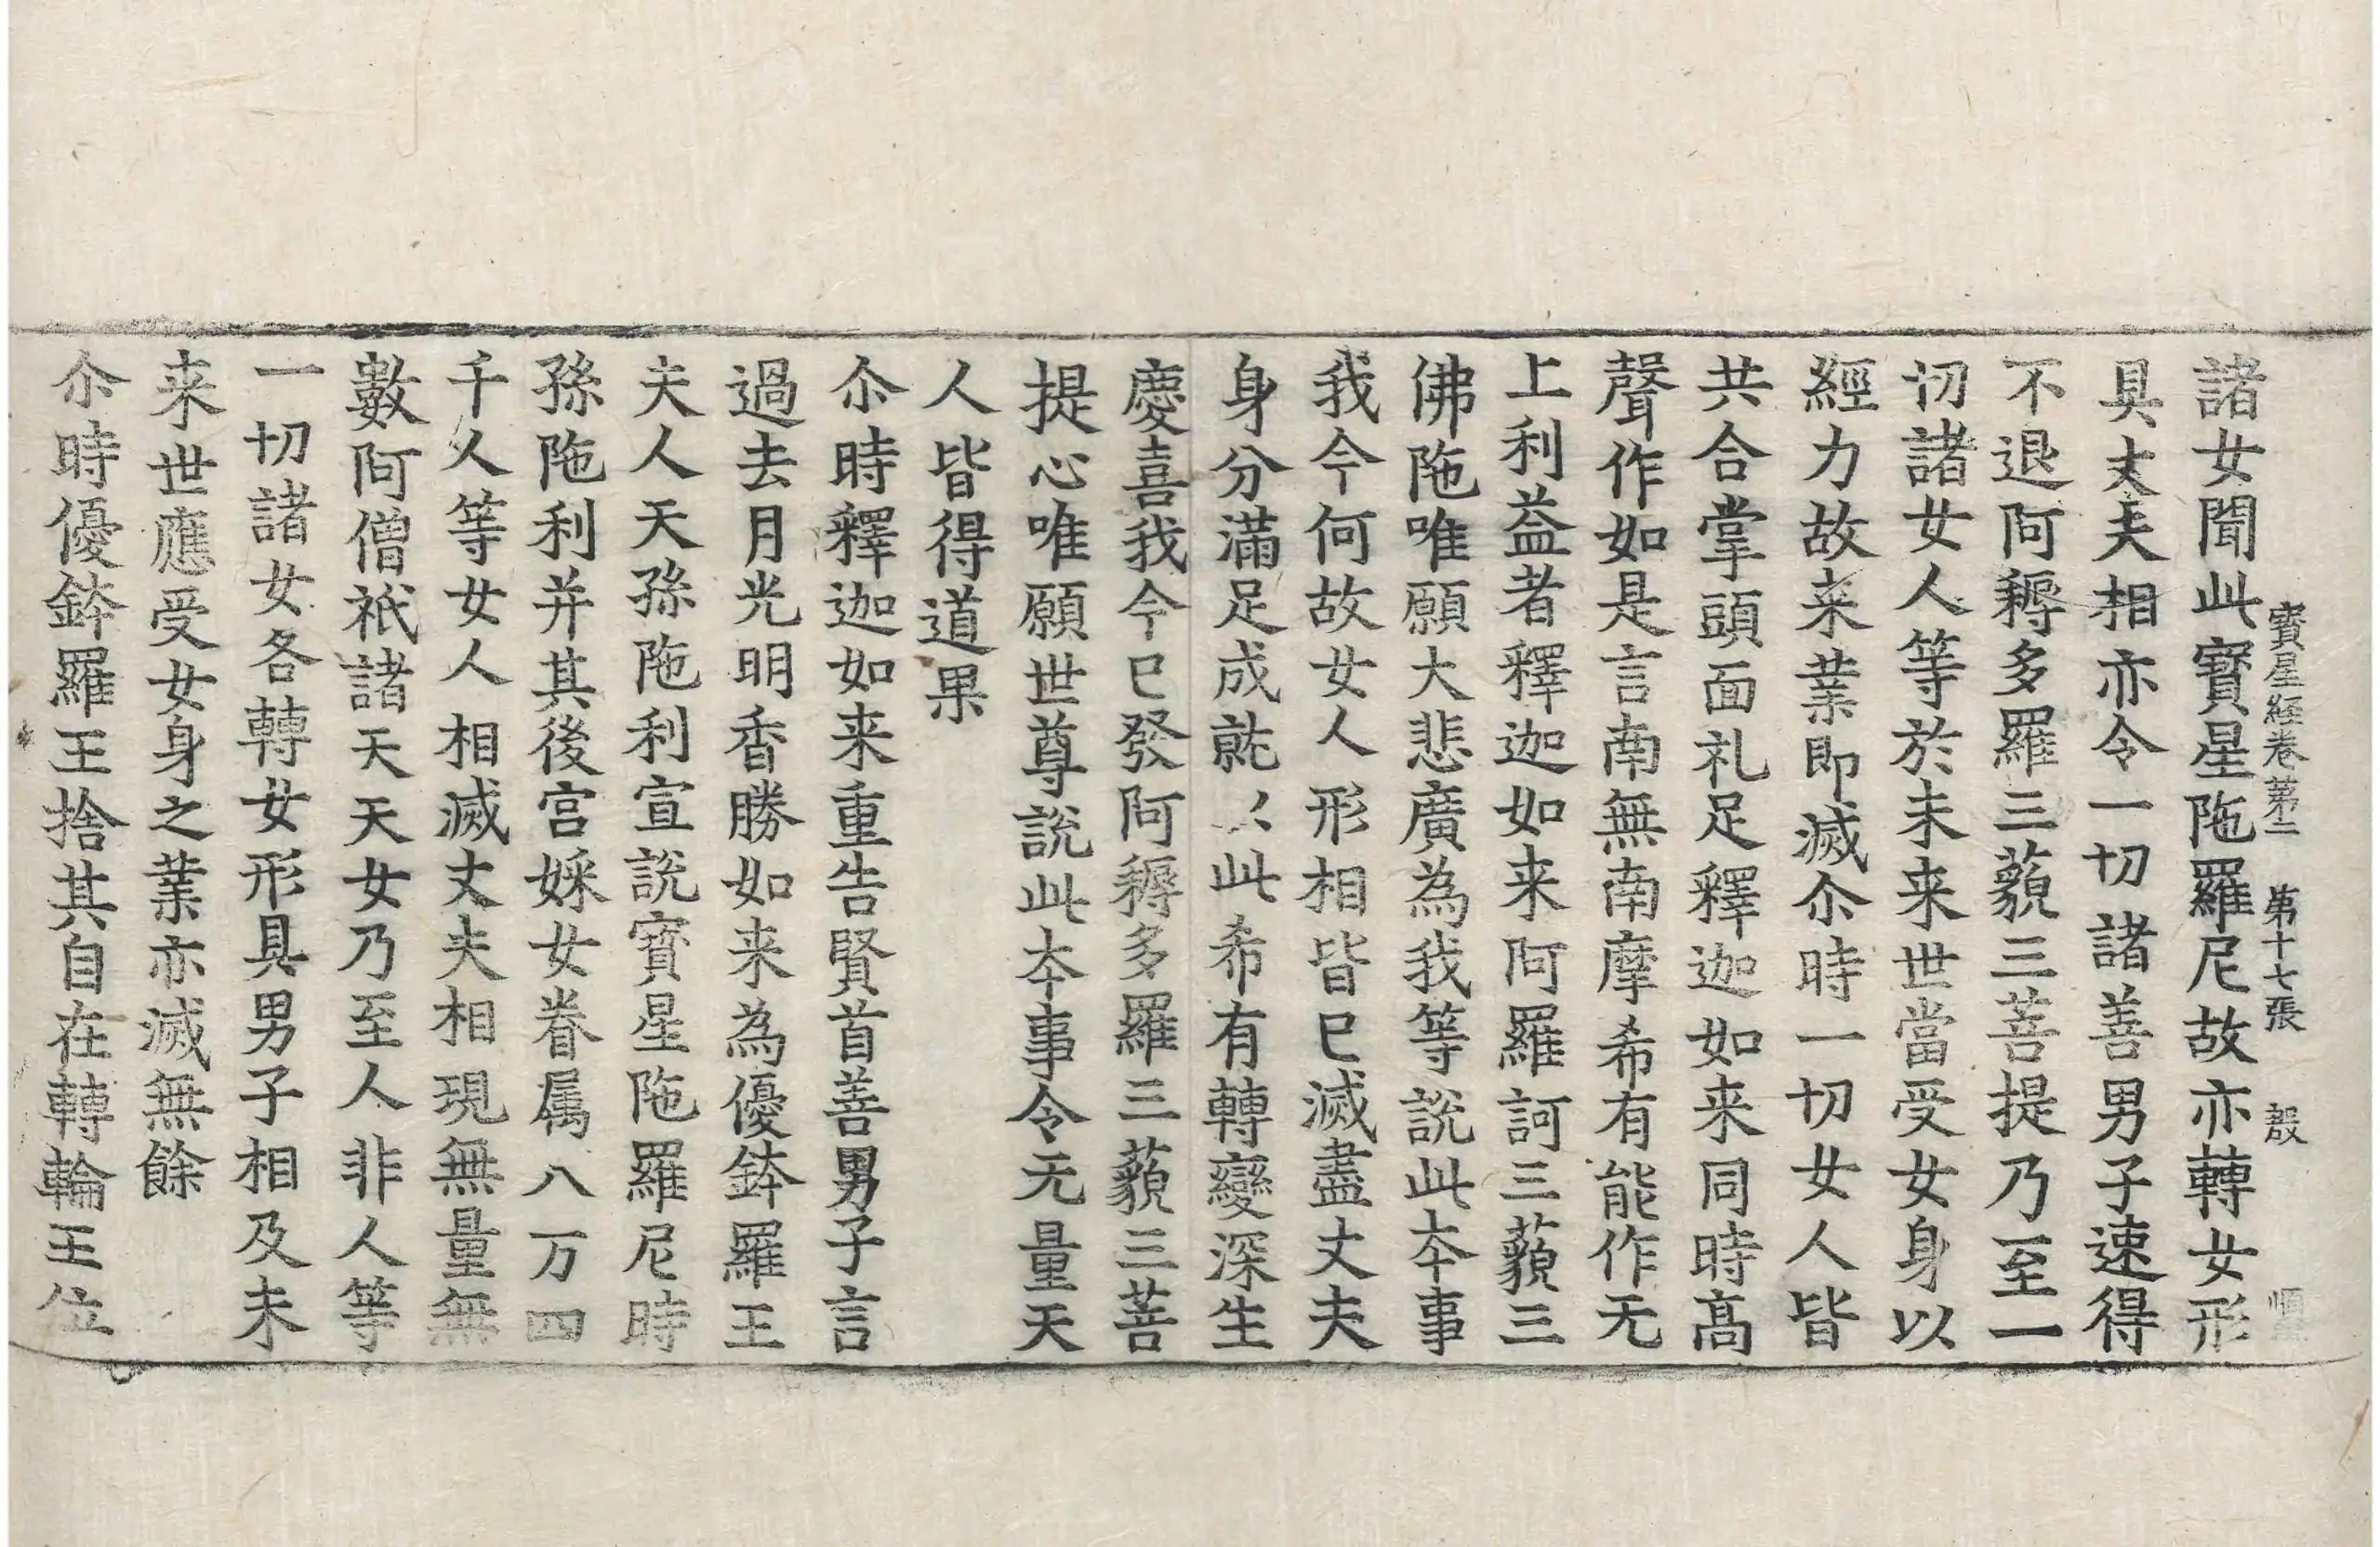 寳星經卷第二 第十七張 㲉
諸女聞此寳星陁羅尼故亦轉女形
具丈夫相亦令一切諸善男子速得
不退阿耨多羅三藐三菩提乃至一
切諸女人等於未来世當受女身以
經力故来業即滅尒時一切女人皆
共合掌頭面礼足釋迦如来同時髙
聲作如是言南無南摩希有能作无
上利益者釋迦如来阿羅訶三藐三
佛陁唯願大悲廣為我等説此夲事
我今何故女人形相皆巳滅盡丈夫
身分滿足成就以此希有轉變深生
慶喜我今巳發阿耨多羅三藐三菩
提心唯願世尊説此夲事令无量天
人皆得道果
尒時釋迦如来重告賢首善男子言
過去月光明香勝如来為優鉢羅王
夫人天孫陁利宣説寳星陁羅尼時
孫陁利并其後宫婇女眷属八万四
千人等女人相滅丈夫相現無量無
數阿僧祇諸天天女乃至人非人等
一切諸女各轉女形具男子相及未
来世應受女身之業亦滅無餘
尒時優鉢羅王捨其自在轉輪王位